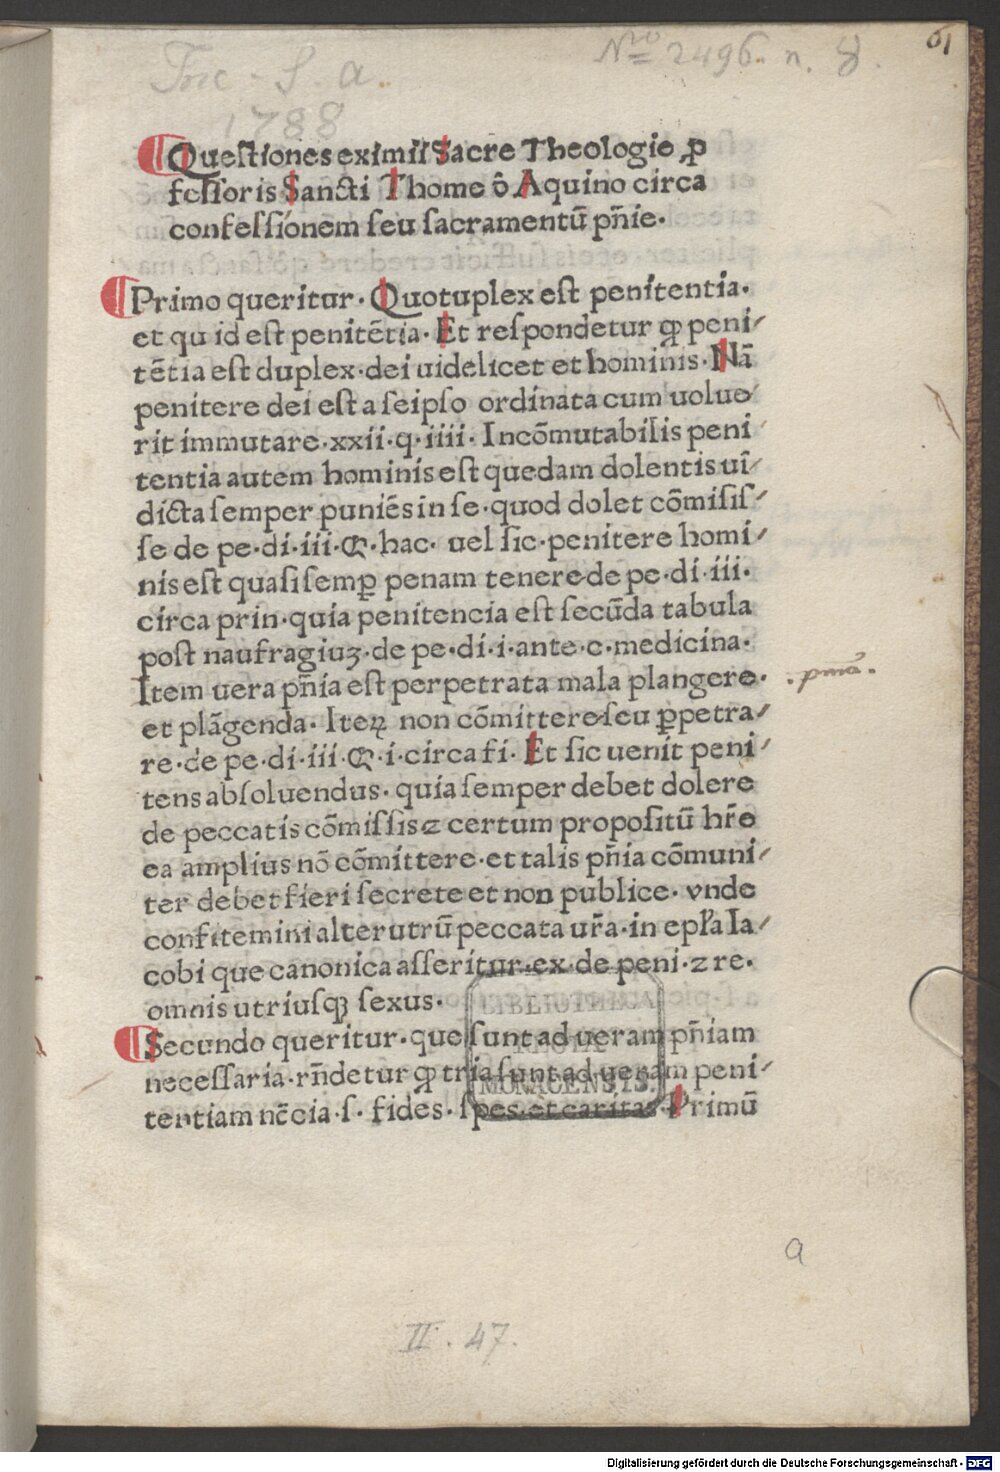 61
Nro 2496. n. 8.
Inc. S. a.
1788
Questiones eximii Sacre Theologie ꝓ
feſſoris Sancti Thome ô Aquino circa
confeſſionem ſeu ſacramentū pn̄ie.
Primo queritur. Quotuplex eſt penitentia.
et quid eſt penitētia. Et reſpondetur ꝙ peni⸗
tētia eſt duplex. dei uidelicet et hominis. Nā
penitere dei eſt a ſeipſo ordinata cum uolue⸗
rit immutare. xxii. q. iiii. Incōmutabilis peni
tentia autem hominis eſt quedam dolentis ui⸗
dicta ſemper puniēs in ſe. quod dolet cōmiſiſ⸗
ſe de pe. di. iii. Ꝯ. hac. uel ſic. penitere homi⸗
nis eſt quaſi ſemꝑ penam tenere de pe. di. iii.
circa prin. quia penitencia eſt ſecūda tabula
poſt naufragiuꝫ. de pe. di. i. ante. c. medicina.
Item uera pn̄ia eſt perpetrata mala plangere.
. pma .
et plāgenda. Iteꝝ non cōmittere ſeu ꝑpetra⸗
re. de pe. di. iii. Ꝯ. i. circa fi. Et ſic uenit peni⸗
tens abſoluendus. quia ſemper debet dolere
de peccatis cōmiſſis ⁊ certum propoſitū hr̄e
ea amplius nō cōmittere. et talis pn̄ia cōmuni⸗
ter debet fieri ſecrete et non publice. vnde
confitemini alterutrū peccata ur̄a. in epl̄a Ia⸗
cobi que canonica aſſeritur. ex. de peni. ⁊ re.
omnis utriuſqꝫ ſexus.
Secundo queritur. que ſunt ad ueram pn̄iam
neceſſaria. rn̄detur ꝙ tria ſunt ad ueram peni⸗
tentiam nc̄cia. ſ. fides. ſpes. et caritas. Primū
BIBLIOTHECA
REGIA
MONACENSIS.
a
II. 47.
Digitalisierung gefördert durch die Deutsche Forschungsgemeinschaft - DFG